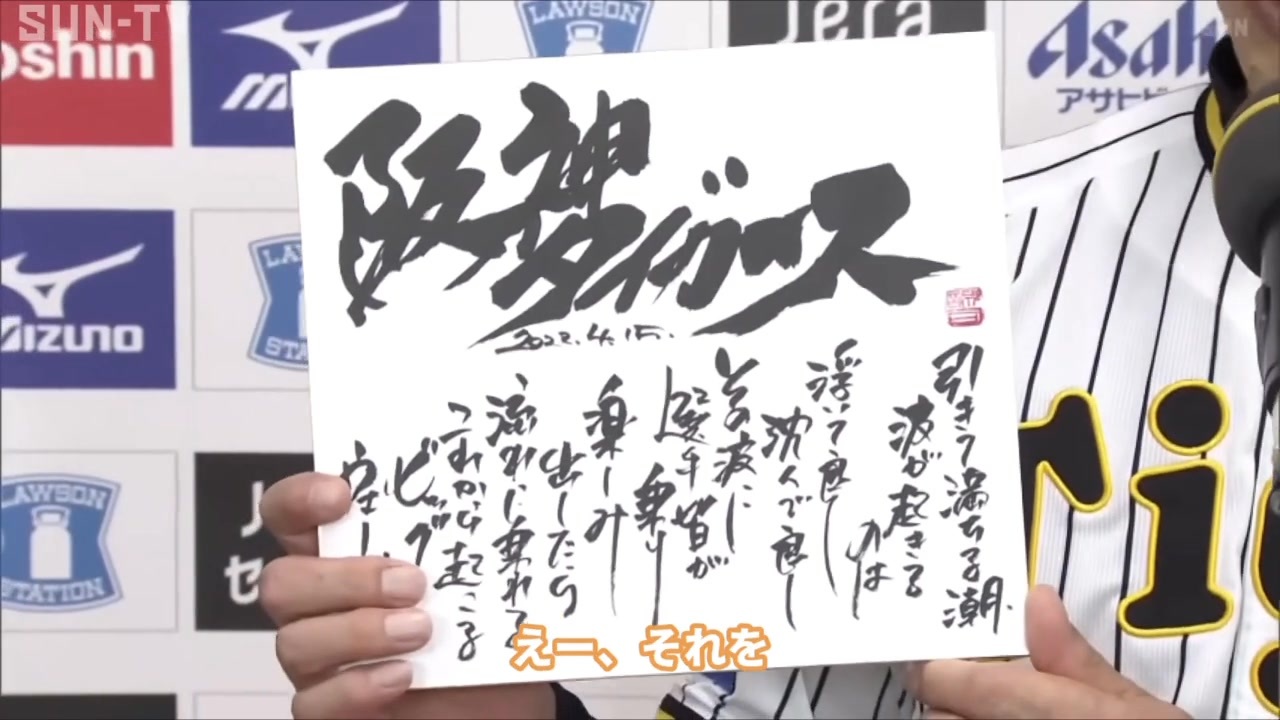 SUN-T
oshin
LAWSON
Jera
Asahi
アサヒビ
MIZUNO
LAWSON
STATION
LAWSON
STATION
セ
阪神タイガース
2022.4.15.
引きつ満ちる潮
波が起きる
のは
浮いて良し
沈んで良し
その波に
選手皆が
乗り
楽しみ
出したら
流れに乗れる
これから起こる
ビッグ
ウェーブ
Tig
えー、それを